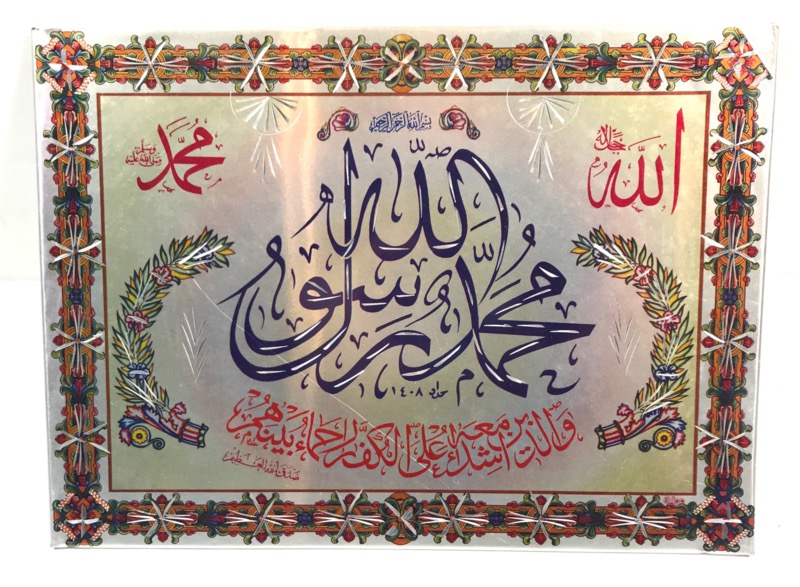 بسم الله الرحمن الرحيم
الله جل جلاله
محمد صلى الله عليه وسلم
محمد رسول الله
حداد ١٤٠٨
والذين معه اشداء على الكفار رحماء بينهم
صدق الله العظيم